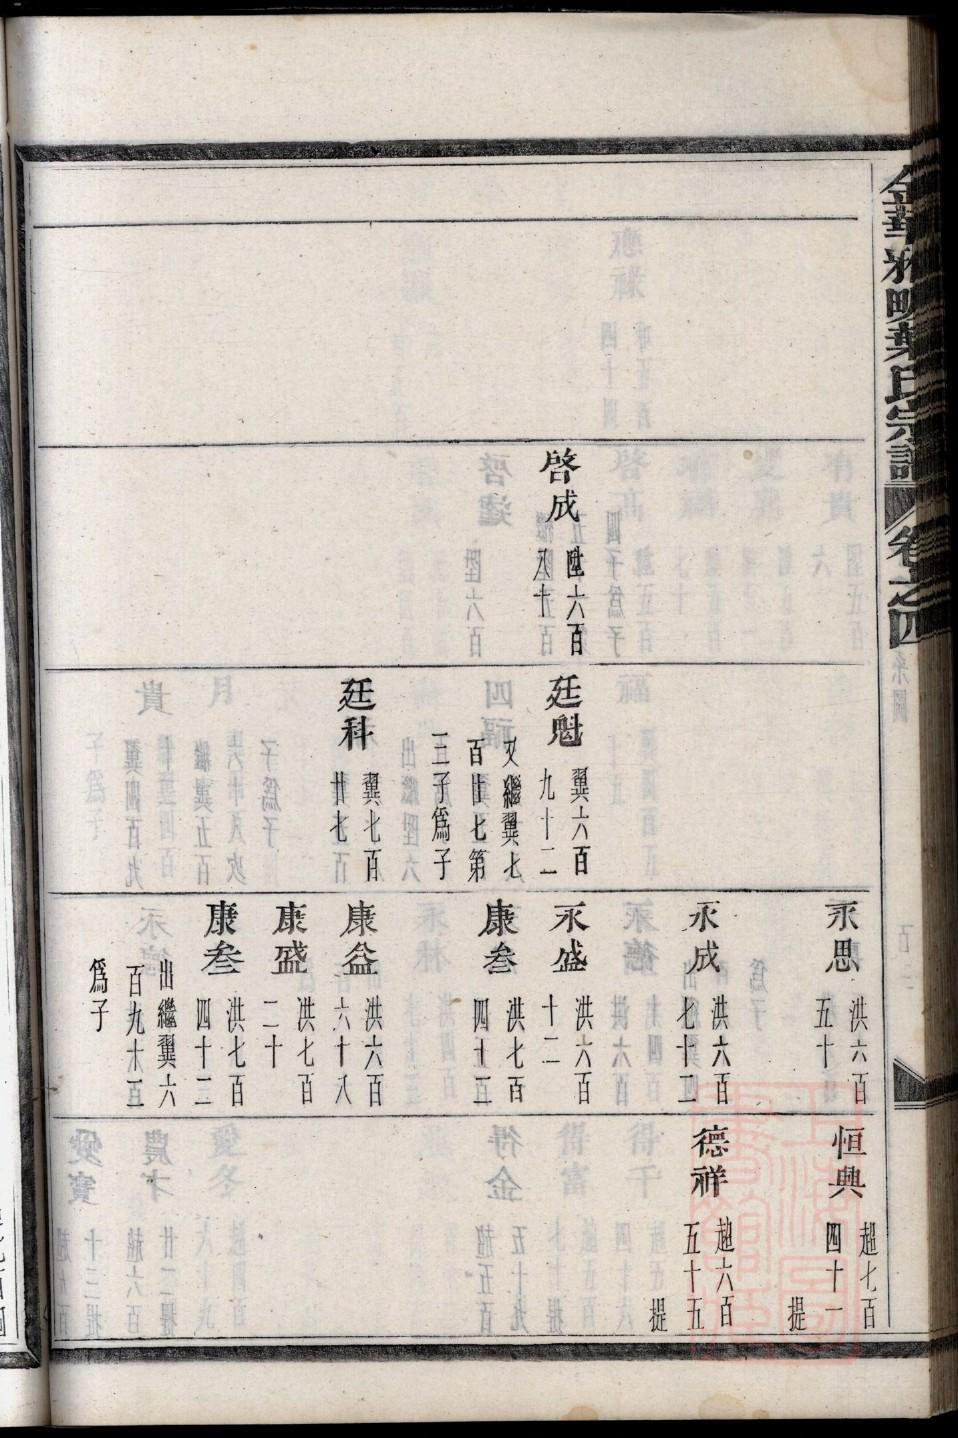 金華雅畈葉氏宗譜 卷之四 系圖
啓成
陞六百
八十
廷魁
翼六百
九十二
又繼翼七
百廿七第
三子爲子
廷科
翼七百
廿七
永思
洪六百
五十
永成
洪六百
七十二
永盛
洪六百
十二
康叁
洪七百
四十三
康益
洪六百
六十八
康盛
洪七百
二十
康叁
洪七百
四十三
出繼翼六
百九十二
爲子
恒興
趄七百
四十一
提
德祥
趄六百
五十五
提